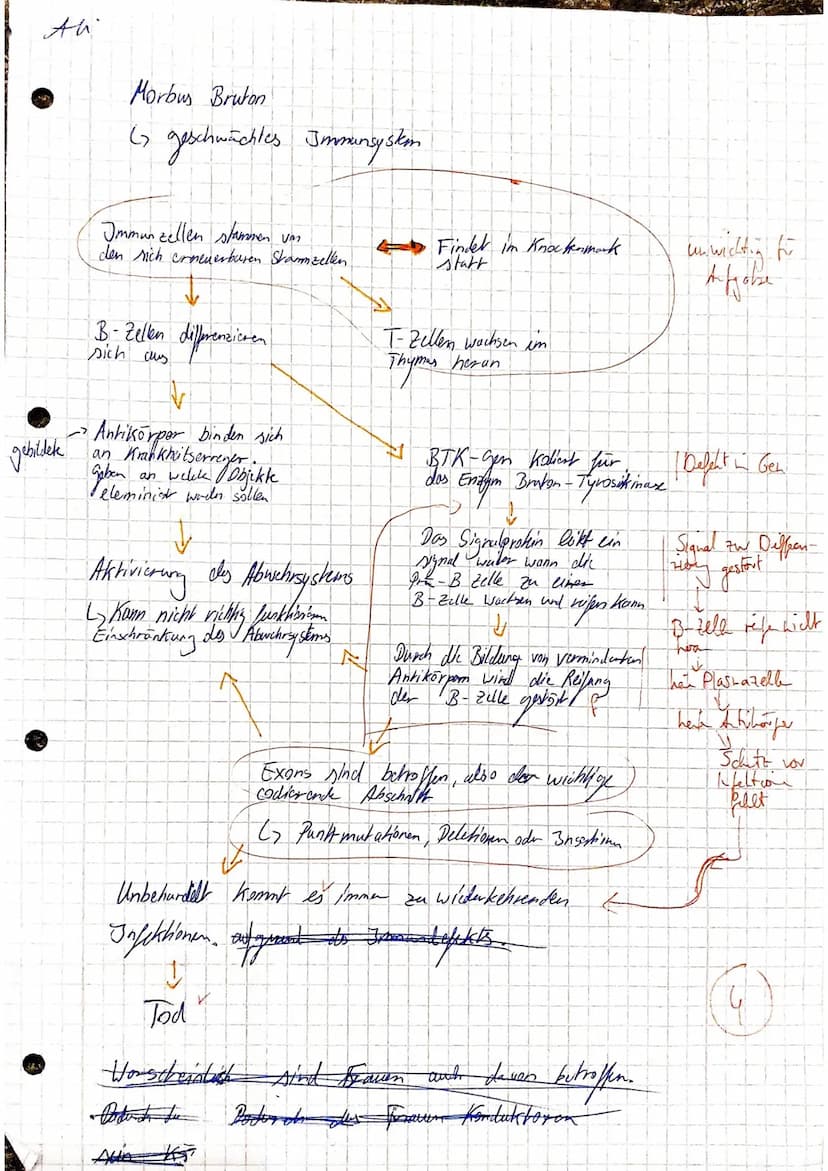 Ali
Morbus Bruton
↳ geschwächtes Immunsystem
Immunzellen stammen von
den sich erneuerbaren Stammzellen
Findet im Knochenmark
statt
unwichtig für
Aufgabe
B-Zellen differenzieren
sich aus
T-Zellen wachsen im
Thymus heran
gebildete
→ Antikörper binden sich
an Krankheitserreger.
Geben an welche Objekte
eleminiert werden sollen
BTK-Gen kodiert für
das Enzym Bruton-Tyrosinkinase
Defekt in Gen
Aktivierung des Abwehrsystems
↳ Kann nicht richtig funktionieren
Einschränkung des Abwehrsystems
Das Signalprotein leitet ein
signal weiter wann die
Prä-B Zelle zu einer
B-Zelle wachsen und reifen kann
Signal zur Differen-
zierung gestört
B-Zelle reifen nicht
heran
kein Plasmazelle
keine Antikörper
Schutz vor
Infektion
fehlt
Durch die Bildung von verminderten
Antikörpern wird die Reifung
der B-Zelle gestört
Exons sind betroffen, also der wichtige
codierende Abschnitt
↳ Punktmutationen, Deletionen oder Insertionen
Unbehandelt kommt es immer zu wiederkehrenden
Infektionen. aufgrund des Immundefekts.
Tod
4
Worscheinlich sind Frauen auch davon betroffen.
Dadurch das Frauen Konduktoren
sein